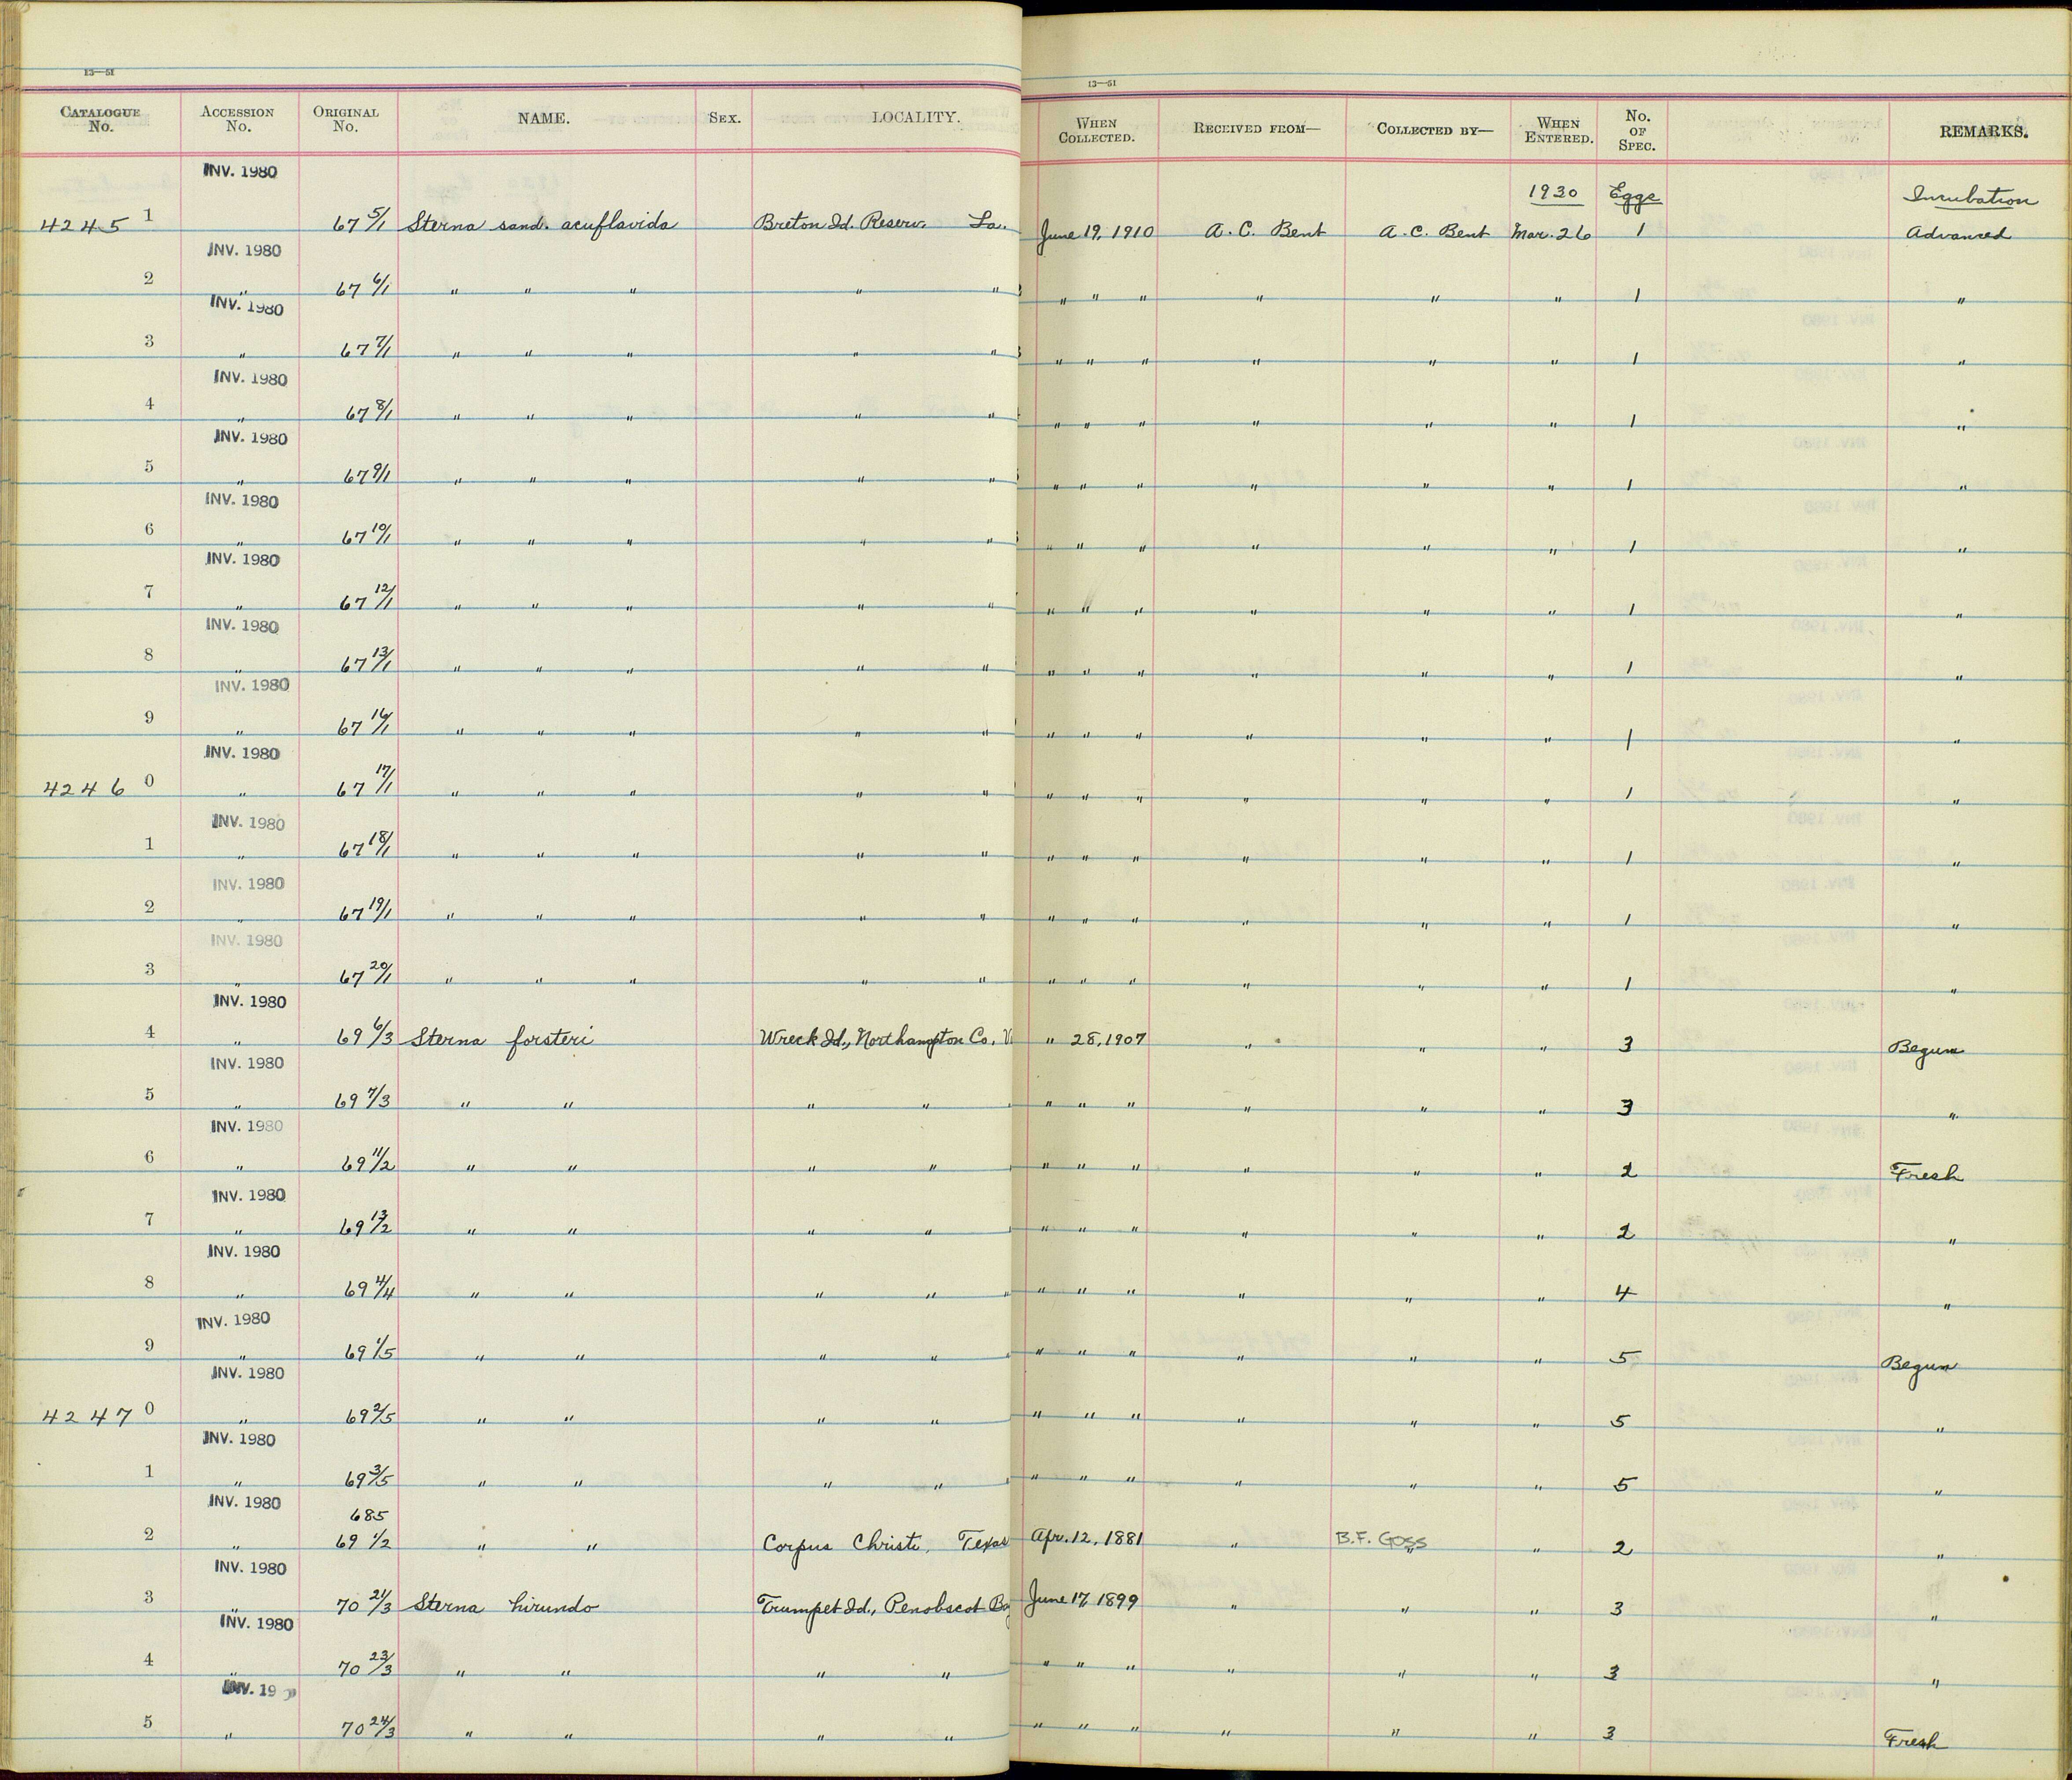 13—51 13—51
CATALOGUE No. ACCESSION No. ORIGINAL No. NAME. SEX. LOCALITY. WHEN COLLECTED. RECEIVED FROM— COLLECTED BY— WHEN ENTERED. No. OF SPEC. REMARKS.
INV. 1980
1930 Eggs Incubation
4245 1 67 5/1 Sterna sand. acuflavida Breton Id. Reserv. La. June 19, 1910 A. C. Bent A. C. Bent Mar. 26 1 Advanced
INV. 1980
2 " 67 6/1 " " " " " " " " " " " 1 "
INV. 1980
3 " 67 7/1 " " " " " " " " " " " 1 "
INV. 1980
4 " 67 8/1 " " " " " " " " " " " 1 "
INV. 1980
5 " 67 9/1 " " " " " " " " " " " 1 "
INV. 1980
6 " 67 10/1 " " " " " " " " " " " 1 "
INV. 1980
7 " 67 12/1 " " " " " " " " " " " 1 "
INV. 1980
8 " 67 13/1 " " " " " " " " " " " 1 "
INV. 1980
9 " 67 16/1 " " " " " " " " " " " 1 "
INV. 1980
4246 0 " 67 17/1 " " " " " " " " " " " 1 "
INV. 1980
1 " 67 18/1 " " " " " " " " " " " 1 "
INV. 1980
2 " 67 19/1 " " " " " " " " " " " 1 "
INV. 1980
3 " 67 20/1 " " " " " " " " " " " 1 "
INV. 1980
4 " 69 6/3 Sterna forsteri Wreck Id., Northampton Co. V " 28, 1907 " " " 3 Begun
INV. 1980
5 " 69 7/3 " " " " " " " " " " 3 "
INV. 1980
6 " 69 11/2 " " " " " " " " " " 2 Fresh
INV. 1980
7 " 69 13/2 " " " " " " " " " " 2 "
INV. 1980
8 " 69 4/4 " " " " " " " " " " 4 "
INV. 1980
9 " 69 1/5 " " " " " " " " " " 5 Begun
INV. 1980
4247 0 " 69 2/5 " " " " " " " " " " 5 "
INV. 1980
1 " 69 3/5 " " " " " " " " " " 5 "
INV. 1980
685
2 " 69 1/2 " " Corpus Christi, Texas Apr. 12, 1881 " B.F. Goss " " 2 "
INV. 1980
3 " 70 21/3 Sterna hirundo Trumpet Id., Penobscot Ba June 17, 1899 " " " 3 "
INV. 1980
4 " 70 23/3 " " " " " " " " " " 3 "
INV. 19
5 " 70 24/3 " " " " " " " " " " 3 Fresh